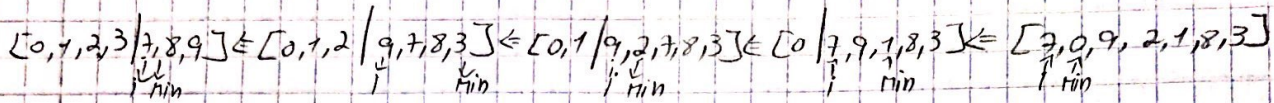 [0,1,2,3|7,8,9] ⇐ [0,1,2|9,7,8,3] ⇐ [0,1|9,2,7,8,3] ⇐ [0|7,9,1,8,3] ⇐ [7,0,9,2,1,8,3]
i min i min i min i min i min